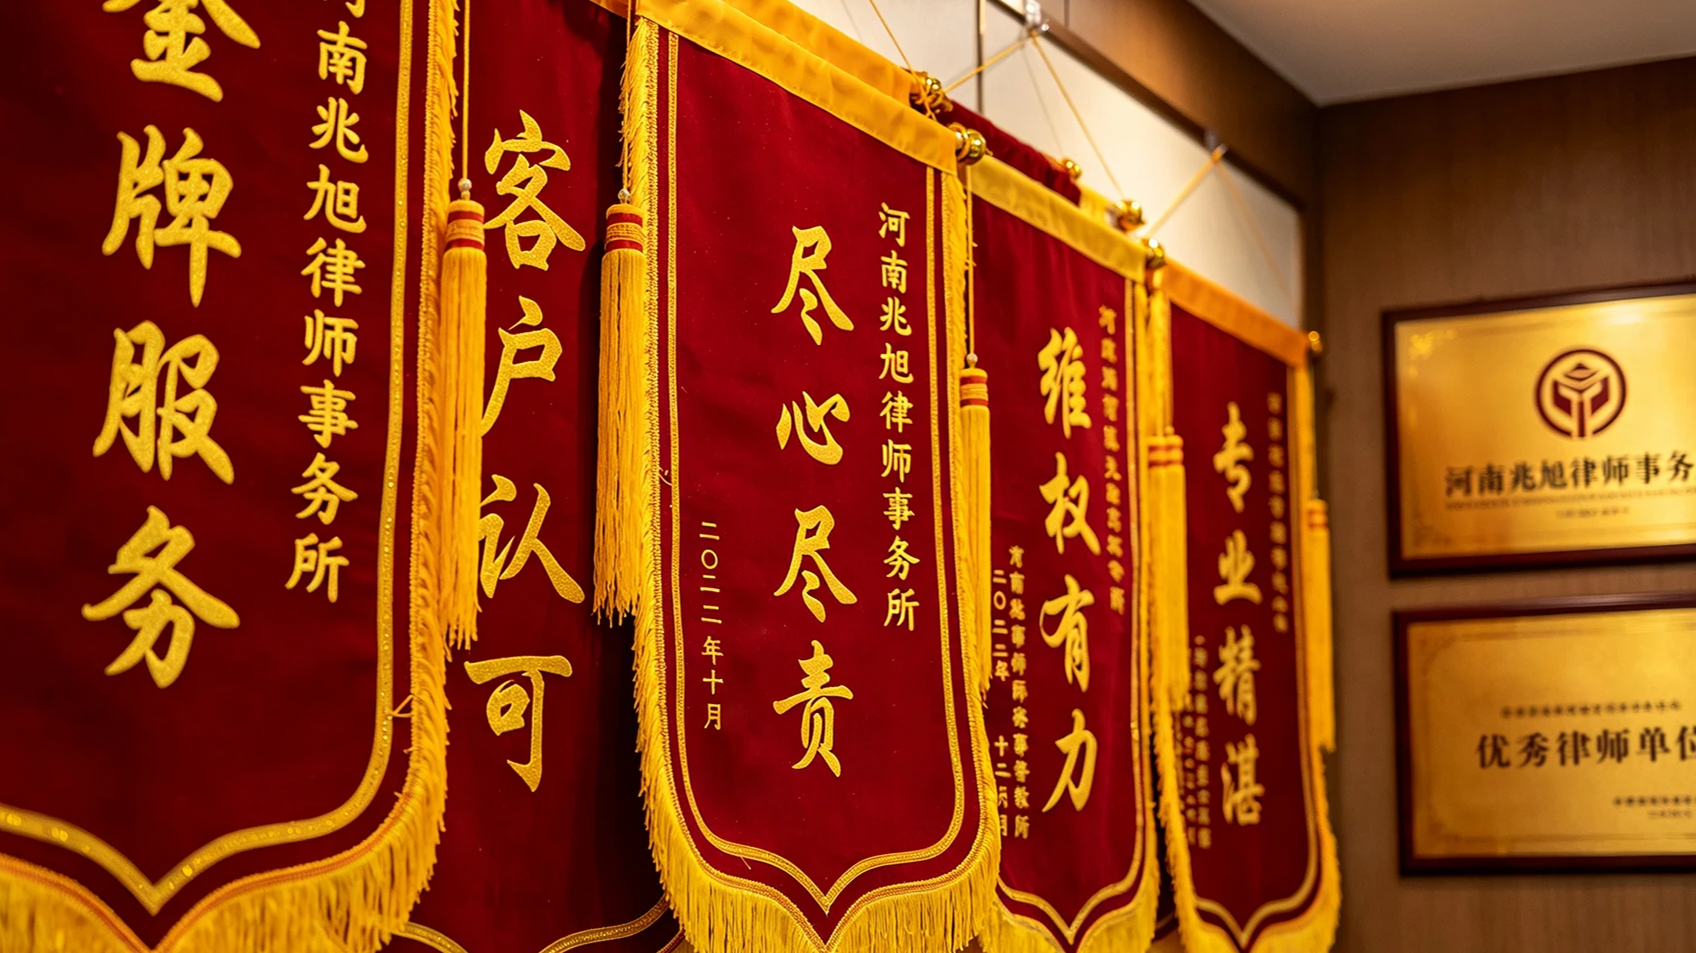 河南兆旭律师事务所
金牌服务
客户认可
河南兆旭律师事务所
尽心尽责
二〇二二年十月
维权有力
二〇二二年
专业精湛
河南兆旭律师事务
优秀律师单位